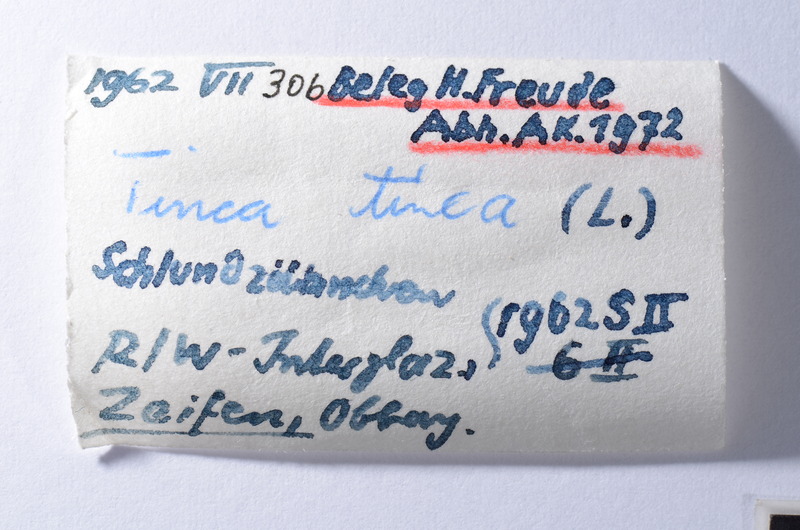 1962 VII 306 Beleg H. Freude
Abh. AK. 1972
Tinca tinca (L.)
Schlundzähnchen
1962 S II
6 III
R/W-Interglaz.,
Zeifen, Obbay.